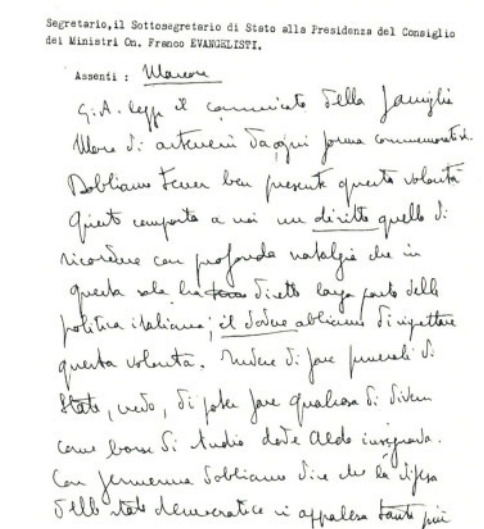 Segretario,il Sottosegretario di Stato alla Presidenza del Consiglio
dei Ministri On. Franco EVANGELISTI.
Assenti :
G.A. legge il comunicato della famiglia
Moro di astenersi da ogni forma commemorativa.
Dobbiamo tener ben presente questa volontà
Questo comporta a noi un diritto quello di
ricordare con profonda nostalgia che in
questa sala ha diretto larga parte della
politica italiana; il dovere abbiamo di rispettare
questa volontà. di fare funerali di
Stato, credo, di poter fare qualcosa di diverso
come borse di studio dove Aldo insegnava.
Con fermezza dobbiamo dire che la difesa
dello stato democratico si appalesa tanto più